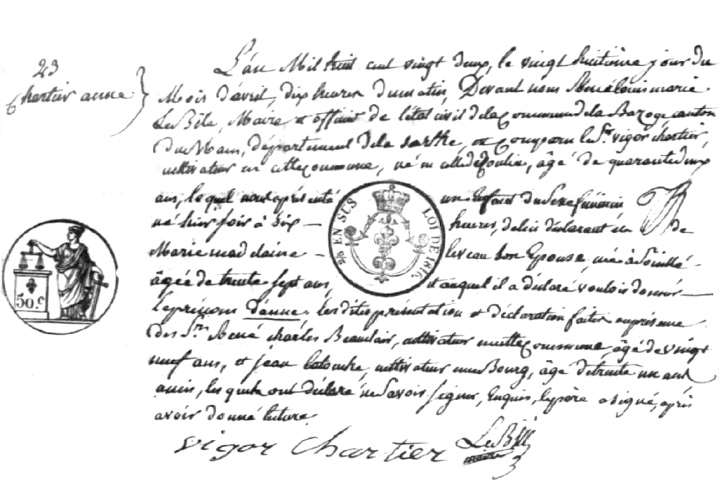 23
Chartier anne
L'an Mil huit cent vingt deux, le vingt huitième jour du
Mois d'avril, dix heures du matin, Devant nous marie
Le Bêle, Maire et officier de l'état civil de la Commune de la Bazoge canton
du Mans, département de la Sarthe, est comparu le Sr. vigor chartier,
cultivateur en cette commune, né en celle de , âgé de quarante deux
ans, lequel nous a présenté un Enfant du Sexe féminin
né hier soir à Six heures, de lui déclarant et de
Marie madelaine leveau son Epouse, née à Souillé
âgée de trente sept ans, et auquel il a déclaré vouloir donner
le prénom d'anne. les dites présentation et déclaration faites en présence
des Srs. René charles Beauclair, cultivateur en cette Commune, âgé de vingt
neuf ans, et jean , cultivateur au Bourg, âgé de trente un ans
amis, les quels ont déclaré ne Savoir signer, Enquis, le père a signé, après
avoir donné lecture.
EN SUS
LOI DE 1816
50 c
vigor chartier Le Bêle
maire